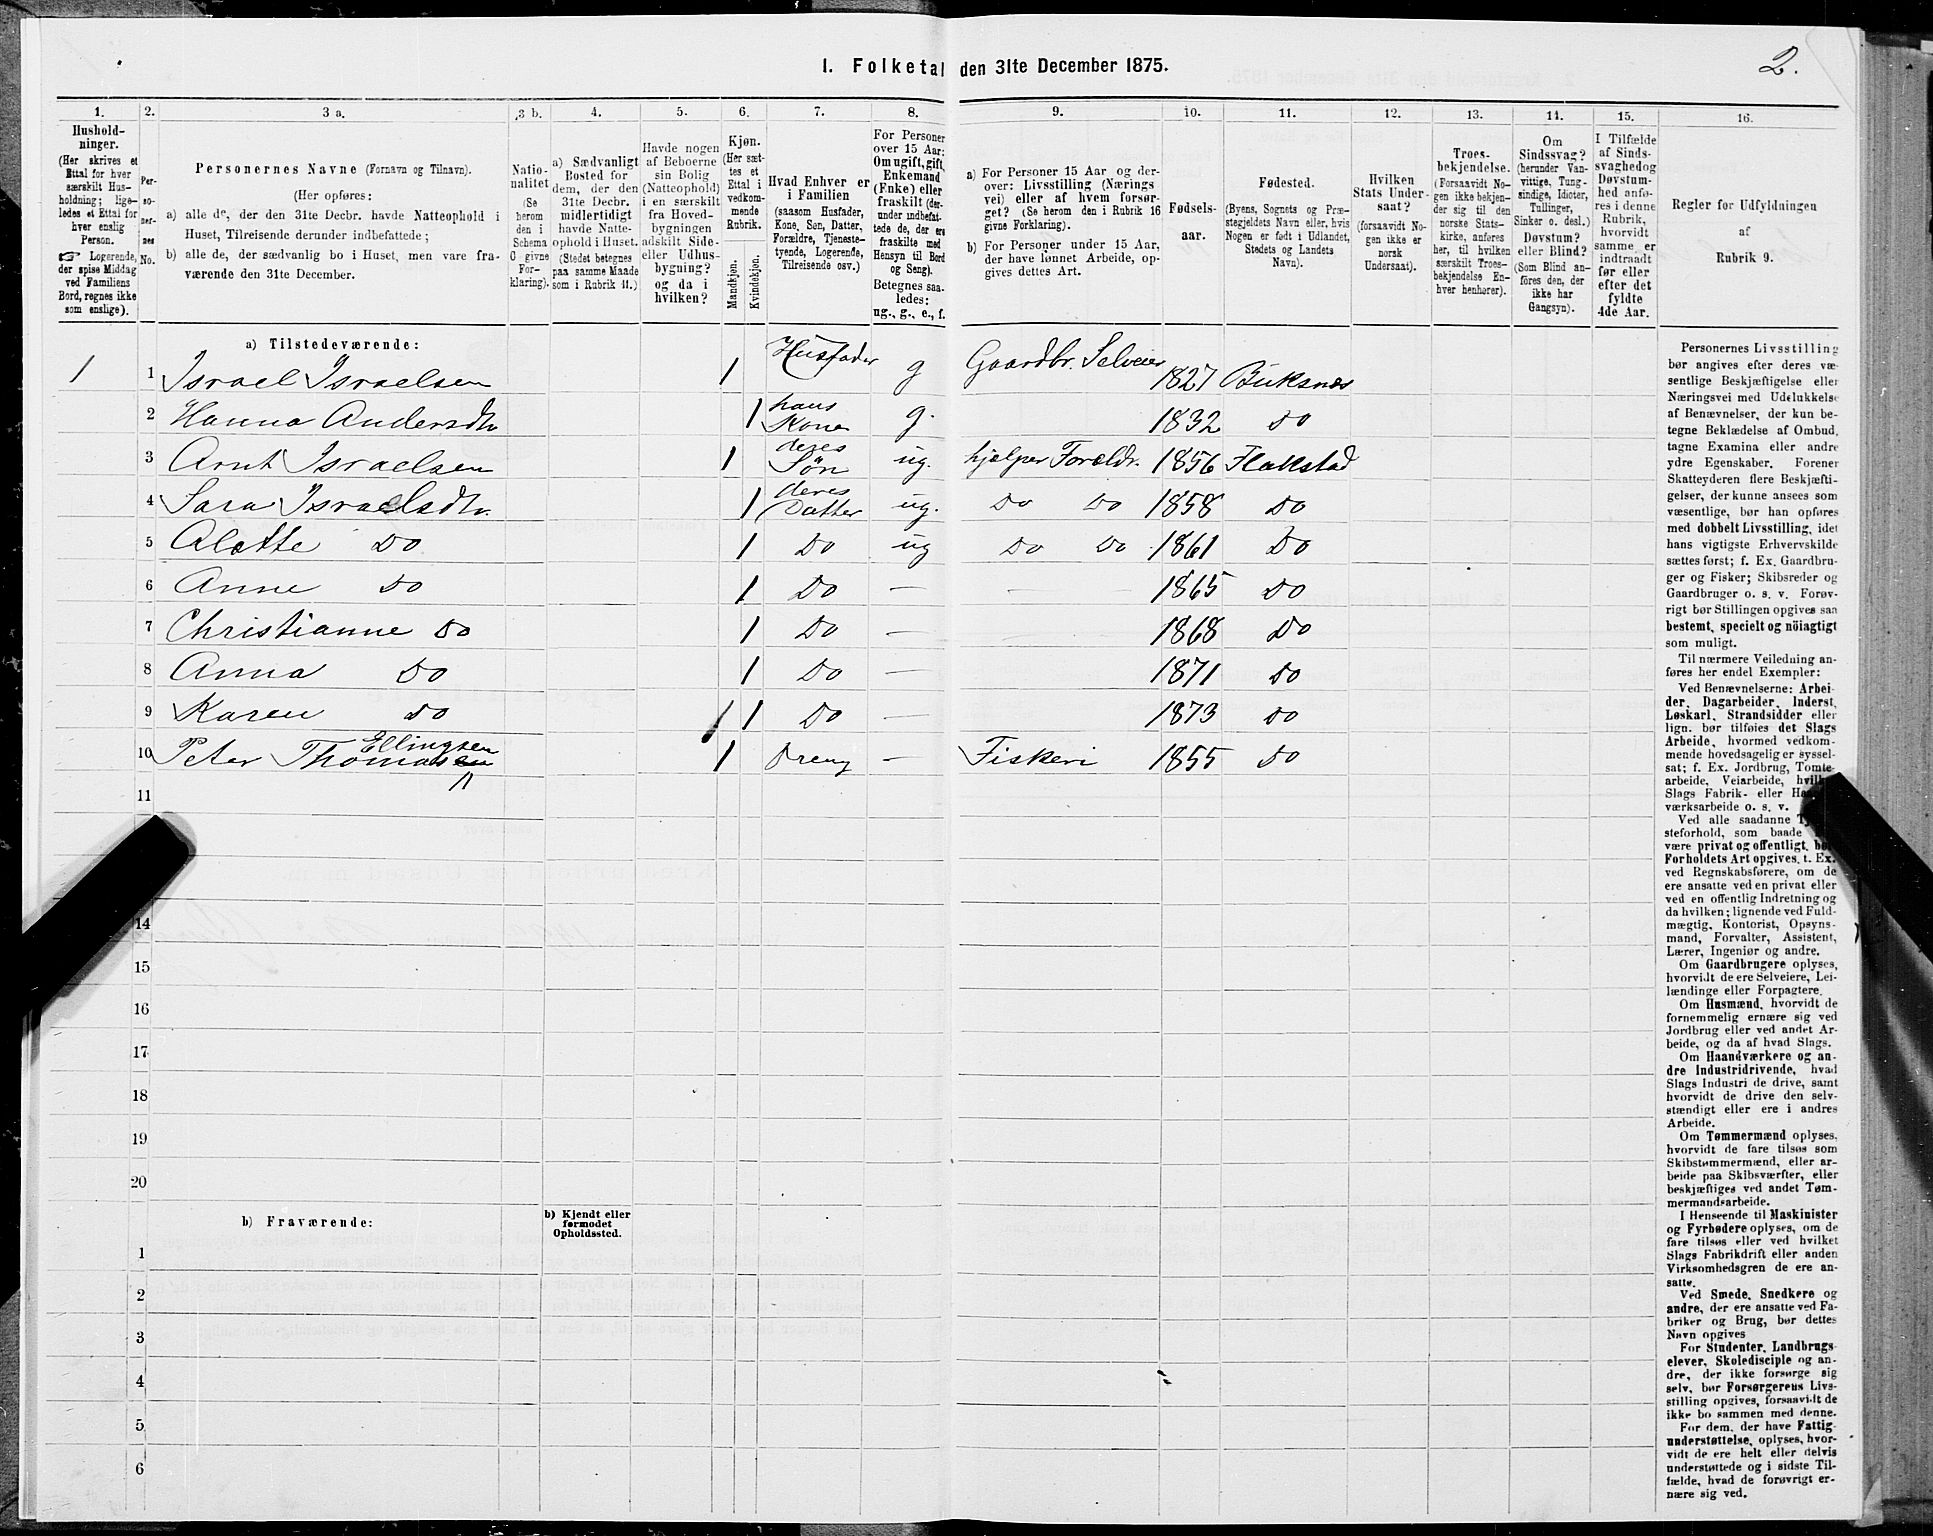 I. Folketal den 31te December 1875.
2.
1.
Hushold-
ninger.
(Her skrives et
Ettal for hver
særskilt Hus-
holdning; lige-
ledes et Ettal for
hver enslig
Person.
Logerende,
der spise Middag
ved Familiens
Bord, regnes ikke
som enslige).
2.
Per-
so-
ner-
nes
No.
3 a.
Personernes Navne (Fornavn og Tilnavn).
(Her opføres:
a) alle de, der den 31te Decbr. havde Natteophold i
Huset, Tilreisende derunder indbefattede;
b) alle de, der sædvanlig bo i Huset, men vare fra-
værende den 31te December.
3 b.
Natio-
nalitet
(Se
herom
den i
Schema
C givne
For-
klaring).
4.
a) Sædvanligt
Bosted for
dem, der den
31te Decbr.
midlertidigt
havde Natte-
ophold i Huset.
(Stedet betegnes
paa samme Maade
som i Rubrik 11.)
5.
Havde nogen
af Beboerne
sin Bolig
(Natteophold)
i en særskilt
fra Hoved-
bygningen
adskilt Side-
eller Udhus-
bygning?
og da i
hvilken?
6.
Kjøn.
(Her sæt-
tes et
Ettal i
vedkom-
mende
Rubrik.
Mandkjøn.
Kvindekjøn.
7.
Hvad Enhver er
i Familien
(saasom Husfader,
Kone, Søn, Datter,
Forældre, Tjeneste-
tyende, Logerende,
Tilreisende osv.)
8.
For Personer
over 15 Aar:
Om ugift, gift,
Enkemand
(Enke) eller
fraskilt (der-
under indbefat-
tede de, der ere
fraskilte med
Hensyn til Bord
og Seng).
Betegnes saa-
ledes:
ug., g., e., f.
9.
a) For Personer 15 Aar og der-
over: Livsstilling (Nærings
vei) eller af hvem forsør-
get? (Se herom den i Rubrik 16
givne Forklaring).
b) For Personer under 15 Aar,
der have lønnet Arbeide, op-
gives dettes Art.
10.
Fødsels-
aar.
11.
Fødested.
(Byens, Sognets og Præ-
stegjeldets Navn eller, hvis
Nogen er født i Udlandet,
Stedets og Landets
Navn).
12.
Hvilken
Stats Under-
saat?
(forsaavidt No-
gen ikke er
norsk
Undersaat).
13.
Troes-
bekjendelse.
(Forsaavidt No-
gen ikke bekjen-
der sig til den
norske Stats-
kirke, anføres
her, til hvilken
særskilt Troes-
bekjendelse En-
hver henhører).
14.
Om
Sindssvag?
(herunder Van-
vittige, Tung-
sindige, Idioter,
Tullinger,
Sinker o. desl.)
Døvstum?
eller Blind?
(Som Blind an-
føres den, der
ikke har
Gangsyn).
15.
I Tilfælde
af Sinds-
svaghed og
Døvstum-
hed anfø-
res i denne
Rubrik,
hvorvidt
samme er
indtraadt
før eller
efter det
fyldte
4de Aar.
16.
Regler for Udfyldningen
af
Rubrik 9.
a) Tilstedeværende:
1 1 Israel Israelsen 1 Husfader g Gaardbr. Selveier 1827 Buksnes
2 Hanna Andersdtr 1 hans Kone g. 1832 Do
3 Arnt Israelsen 1 deres Søn ug. hjelper Foreldr. 1856 Flakstad
4 Sara Israelsdtr. 1 deres Datter ug. Do Do 1858 Do
5 Alette Do 1 Do ug Do Do 1861 Do
6 Anne Do 1 Do — 1865 Do
7 Christianne Do 1 Do — 1868 Do
8 Anna Do 1 Do — 1871 Do
9 Karen Do 1 Do — 1873 Do
10 Peter Thomassen Ellingsen 1 Dreng — Fiskeri 1855 Do
11
14
15
16
17
18
19
20
b) Fraværende:
b) Kjendt eller
formodet
Opholdssted.
1
2
3
4
5
6
Personernes Livsstilling
bør angives efter deres væ-
sentlige Beskjæftigelse eller
Næringsvei med Udelukkelse
af Benævnelser, der kun be-
tegne Beklædelse af Ombud,
tagne Examina eller andre
ydre Egenskaber. Forener
Skatteyderen flere Beskjæfti-
gelser, der kunne ansees som
væsentlige, bør han opføres
med dobbelt Livsstilling, idet
hans vigtigste Erhvervskilde
sættes først; f. Ex. Gaardbru-
ger og Fisker; Skibsreder og
Gaardbruger o. s. v. Forøv-
rigt bør Stillingen opgives saa
bestemt, specielt og nöiagtigt
som muligt.
Til nærmere Veiledning an-
føres her endel Exempler:
Ved Benævnelserne: Arbei-
der, Dagarbeider, Inderst,
Løskarl, Strandsidder eller
lign. bør tilføies det Slags
Arbeide, hvormed vedkom-
mende hovedsagelig er syssel-
sat; f. Ex. Jordbrug, Tomte-
arbeide, Veiarbeide, hvilket
Slags Fabrik- eller Haand-
værksarbeide o. s. v.
Ved alle saadanne Tjene-
steforhold, som baade kan
være privat og offentligt, bør
Forholdets Art opgives, t. Ex.
ved Regnskabsførere, om de
ere ansatte ved en privat eller
ved en offentlig Indretning og
da hvilken; lignende ved Fuld-
mægtig, Kontorist, Opsyns-
mand, Forvalter, Assistent,
Lærer, Ingeniør og andre.
Om Gaardbrugere oplyses,
hvorvidt de ere Selveiere, Lei-
lændinge eller Forpagtere.
Om Husmænd, hvorvidt de
fornemmelig ernære sig ved
Jordbrug eller ved andet Ar-
beide, og da af hvad Slags.
Om Haandværkere og an-
dre Industridrivende, hvad
Slags Industri de drive, samt
hvorvidt de drive den selv-
stændigt eller ere i andres
Arbeide.
Om Tømmermænd oplyses,
hvorvidt de fare tilsøs som
Skibstømmermænd, eller ar-
beide paa Skibsværfter, eller
beskjæftiges ved andet Tøm-
mermandsarbeide.
I Henseende til Maskinister
og Fyrbødere oplyses, om de
fare tilsøs eller ved hvilket
Slags Fabrikdrift eller anden
Virksomhedsgren de ere an-
satte.
Ved Smede, Snedkere og
andre, der ere ansatte ved Fa-
briker og Brug, bør dettes
Navn opgives
For Studenter, Landbrugs-
elever, Skoledisciple og an-
dre, der ikke forsørge sig
selv, bør Forsørgerens Livs-
stilling opgives, forsaavidt de
ikke bo sammen med denne.
For dem, der have Fattig-
understøttelse, oplyses, hvor-
vidt de ere helt eller delvis
understøttede og i sidste Til-
fælde, hvad de forøvrigt er-
nære sig ved.